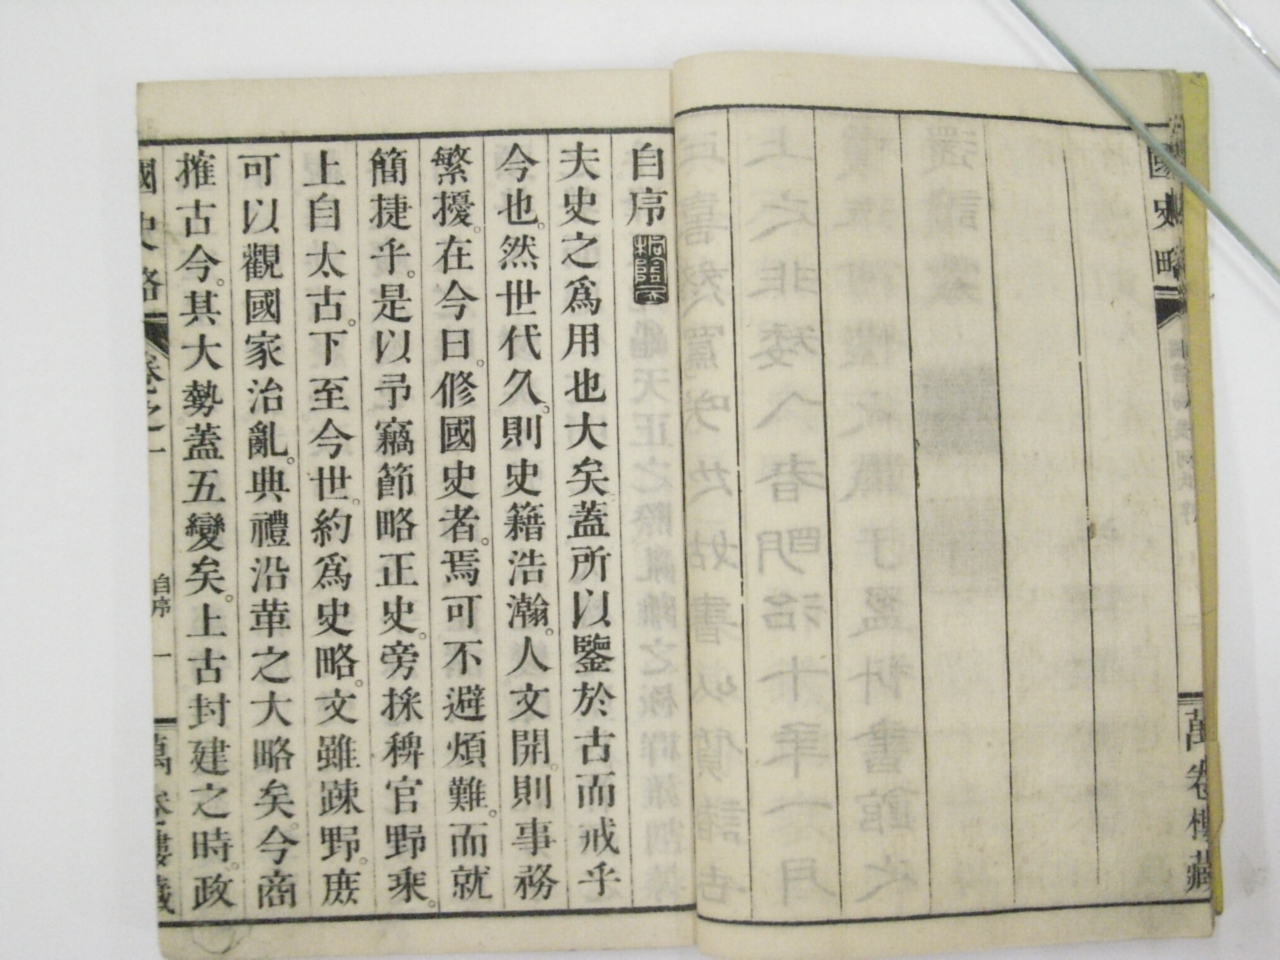 國史略
萬卷樓藏
自序
夫史之爲用也大矣蓋所以鑒於古而戒乎
今也。然世代久。則史籍浩瀚。人文開。則事務
繁擾。在今日。修國史者。焉可不避煩難。而就
簡捷乎。是以予竊節略正史。旁採稗官野乘。
上自太古。下至今世。約爲史略。文雖踈野。庶
可以觀國家治亂。典禮沿革之大略矣。今商
搉古今。其大勢蓋五變矣。上古封建之時。政
國史略 卷之一 自序 一 萬卷樓藏